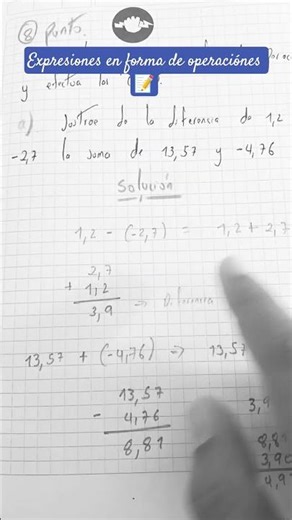 ⑧ punto.
Expresiones en forma de operaciónes
y efectua las
a) Sustrae de la diferencia de 1,2
-2,7 la suma de 13,57 y -4,76
Solución
1,2 - (-2,7) = 1,2 + 2,7
2,7
+ 1,2
3,9 => Diferencia
13,57 + (-4,76) => 13,57
13,57
- 4,76
8,81
3,9
8,81
3,90
4,9